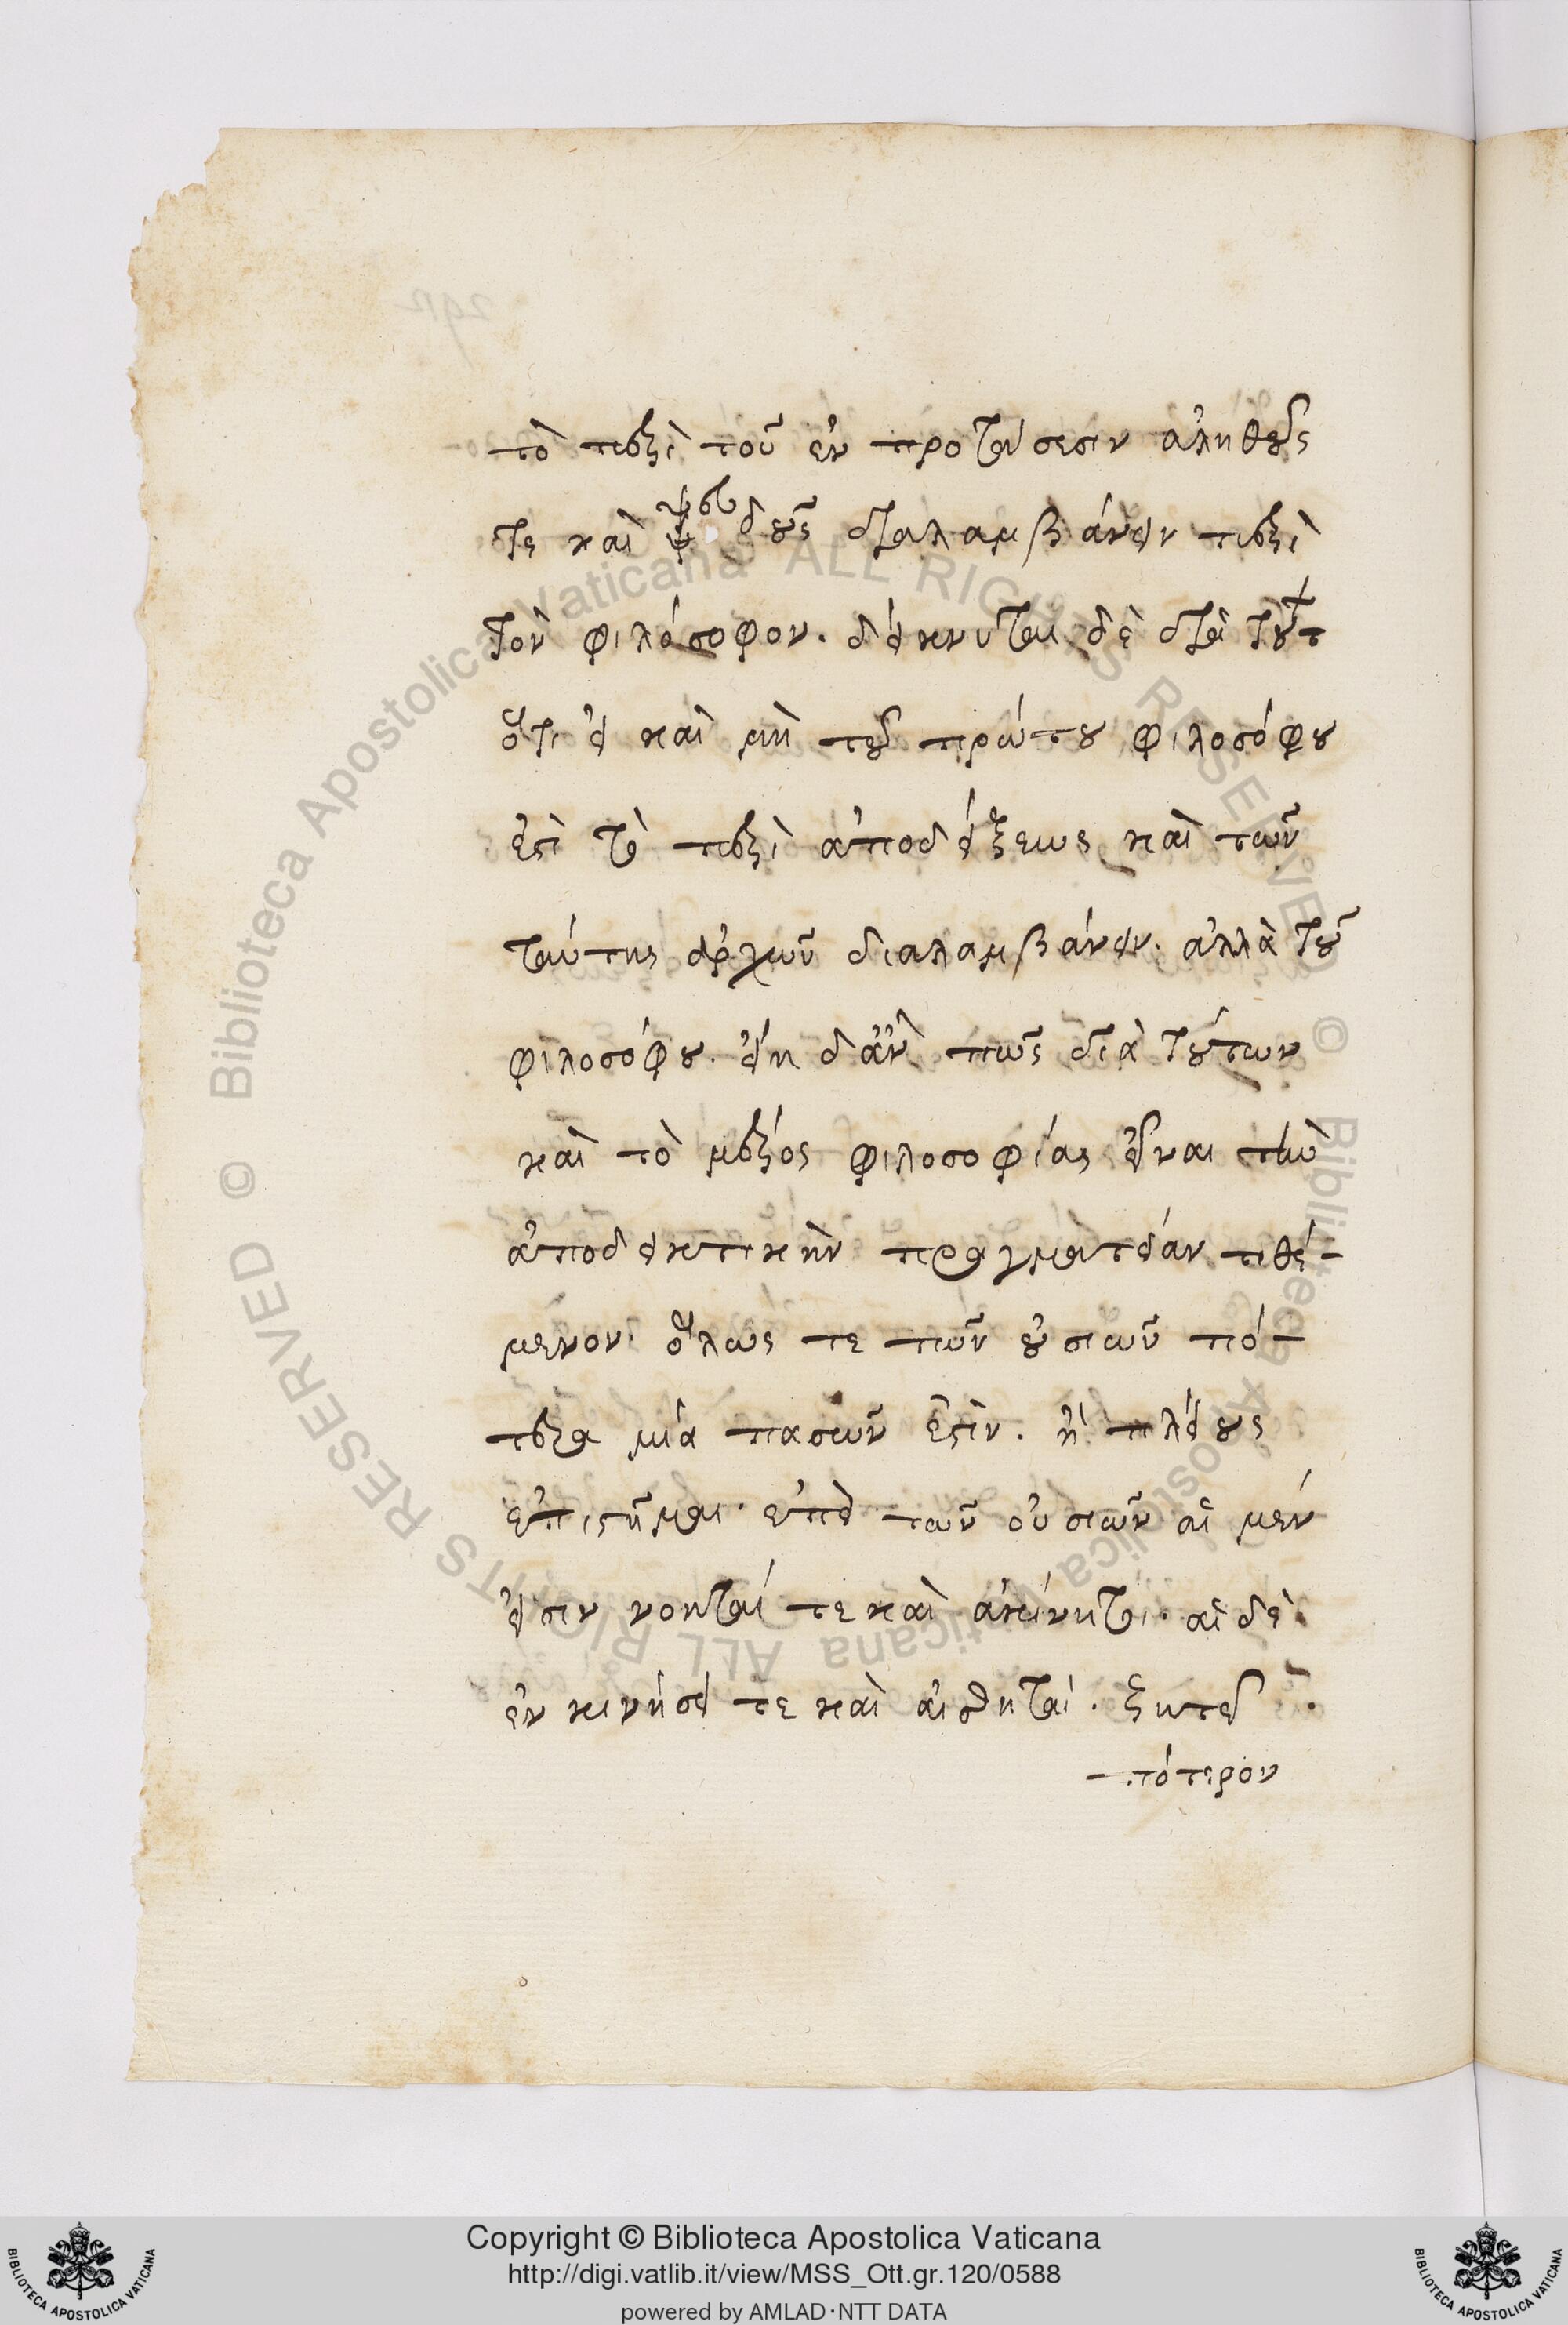 τὸ περὶ τοῦ ἐν προτάσεσιν ἀληθοῦς
τε καὶ ψευδοῦς διαλαμβάνειν περὶ
τὸν φιλόσοφον. δείκνυται δὲ διὰ τούτ
ὅτι εἰ καὶ μὴ τοῦ πρώτου φιλοσόφου
ἐστὶ τὸ περὶ ἀποδείξεως καὶ τῶν
ταύτης ἀρχῶν διαλαμβάνειν. ἀλλὰ τοῦ
φιλοσόφου. εἴη δ' ἂν πως διὰ τούτων
καὶ τὸ μέρος φιλοσοφίας εἶναι τὴν
ἀποδεικτικὴν πραγματείαν τιθέ-
μενον. ὅλως τε τῶν οὐσιῶν πό-
τερα μία πασῶν ἐστίν. ἢ πλείους
ἐπιστῆμαι. ἐπεὶ τῶν οὐσιῶν αἱ μέν
εἰσιν νοηταί τε καὶ ἀκίνητοι. αἱ δὲ
ἐν κινήσει τε καὶ αἰσθηταί. ζητεῖ
-πότερον
Biblioteca Apostolica Vaticana ALL RIGHTS RESERVED ©
Biblioteca Apostolica Vaticana ALL RIGHTS RESERVED ©
BIBLIOTECA APOSTOLICA VATICANA
Copyright © Biblioteca Apostolica Vaticana
http://digi.vatlib.it/view/MSS_Ott.gr.120/0588
powered by AMLAD·NTT DATA
BIBLIOTECA APOSTOLICA VATICANA